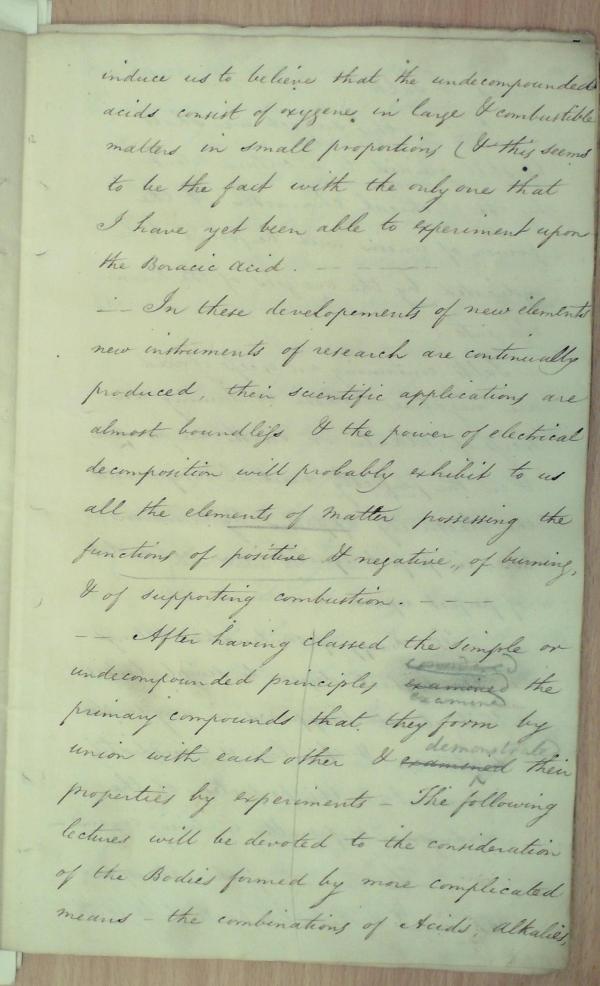 induce us to believe that the undecompounded
acids consist of oxygene in large & combustible
matters in small proportions (& this seems
to be the fact with the only one that
I have yet been able to experiment upon
the Boracic acid. - - - -
- - In these developements of new elements
new instruments of research are continually
produced, their scientific applications are
almost boundless & the power of electrical
decomposition will probably exhibit to us
all the elements of matter possessing the
functions of positive & negative,, of burning,
& of supporting combustion. - - - -
- - After having classed the simple or
undecompounded principles examined the
examined
primary compounds that they form by
demonstrated
union with each other & examined their
properties by experiments - The following
lectures will be devoted to the consideration
of the Bodies formed by more complicated
means - the combinations of Acids, alkalies,